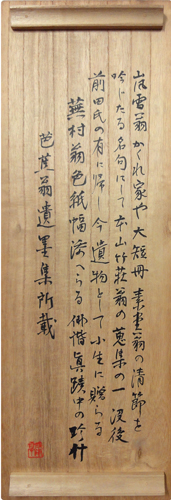 嵐雪翁かくれ家や大短冊素堂翁の清節を
吟じたる名句にして本山竹荘翁の蒐集の一 没後
前田氏の有に帰し今遺物として小生に贈らる
蕪村翁色紙幅添へらる俳諧真蹟中の珍什
芭蕉翁遺墨集所載